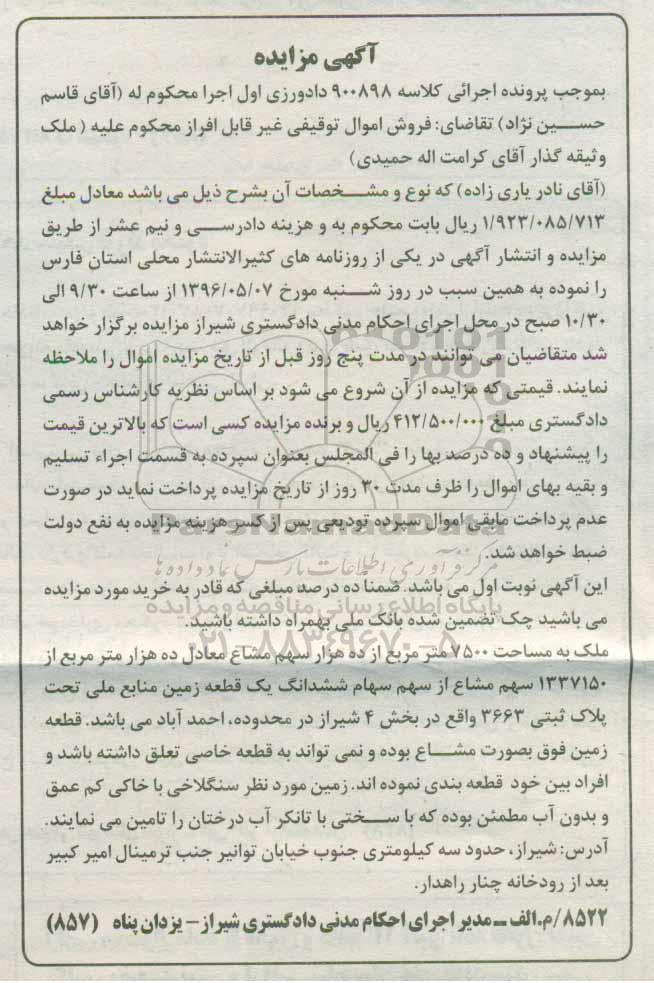 آگهی مزایده
بموجب پرونده اجرائی کلاسه ۹۰۰۸۹۸ دادورزی اول اجرا محکوم له (آقای قاسم
حسین نژاد) تقاضای: فروش اموال توقیفی غیر قابل افراز محکوم علیه ( ملک
وثیقه گذار آقای کرامت اله حمیدی)
(آقای نادر یاری زاده) که نوع و مشخصات آن بشرح ذیل می باشد معادل مبلغ
۱/۹۲۳/۰۸۵/۷۱۳ ریال بابت محکوم به و هزینه دادرسی و نیم عشر از طریق
مزایده و انتشار آگهی در یکی از روزنامه های کثیرالانتشار محلی استان فارس
را نموده به همین سبب در روز شنبه مورخ ۱۳۹۶/۰۵/۰۷ از ساعت ۹/۳۰ الی
۱۰/۳۰ صبح در محل اجرای احکام مدنی دادگستری شیراز مزایده برگزار خواهد
شد متقاضیان می توانند در مدت پنج روز قبل از تاریخ مزایده اموال را ملاحظه
نمایند. قیمتی که مزایده از آن شروع می شود بر اساس نظریه کارشناس رسمی
دادگستری مبلغ ۴۱۲/۵۰۰/۰۰۰ ریال و برنده مزایده کسی است که بالاترین قیمت
را پیشنهاد و ده درصد بها را فی المجلس بعنوان سپرده به قسمت اجراء تسلیم
و بقیه بهای اموال را ظرف مدت ۳۰ روز از تاریخ مزایده پرداخت نماید در صورت
عدم پرداخت مابقی اموال سپرده تودیعی پس از کسر هزینه مزایده به نفع دولت
ضبط خواهد شد.
ParsNamadData
مرکز فرآوری اطلاعات پارس نماد داده ها
این آگهی نوبت اول می باشد. ضمنا ده درصد مبلغی که قادر به خرید مورد مزایده
پایگاه اطلاع رسانی مناقصه و مزایده
می باشید چک تضمین شده بانک ملی بهمراه داشته باشید.
۰۲۱-۸۸۳۴۹۶۷۰-۵
ملک به مساحت ۷۵۰۰ متر مربع از ده هزار سهم مشاع معادل ده هزار متر مربع از
۱۳۳۷۱۵۰ سهم مشاع از سهم سهام ششدانگ یک قطعه زمین منابع ملی تحت
پلاک ثبتی ۳۶۶۳ واقع در بخش ۴ شیراز در محدوده، احمد آباد می باشد. قطعه
زمین فوق بصورت مشاع بوده و نمی تواند به قطعه خاصی تعلق داشته باشد و
افراد بین خود قطعه بندی نموده اند. زمین مورد نظر سنگلاخی با خاکی کم عمق
و بدون آب مطمئن بوده که با سختی با تانکر آب درختان را تامین می نمایند.
آدرس: شیراز، حدود سه کیلومتری جنوب خیابان توانیر جنب ترمینال امیر کبیر
بعد از رودخانه چنار راهدار.
۸۵۲۲/م.الف ـ مدیر اجرای احکام مدنی دادگستری شیراز – یزدان پناه (۸۵۷)